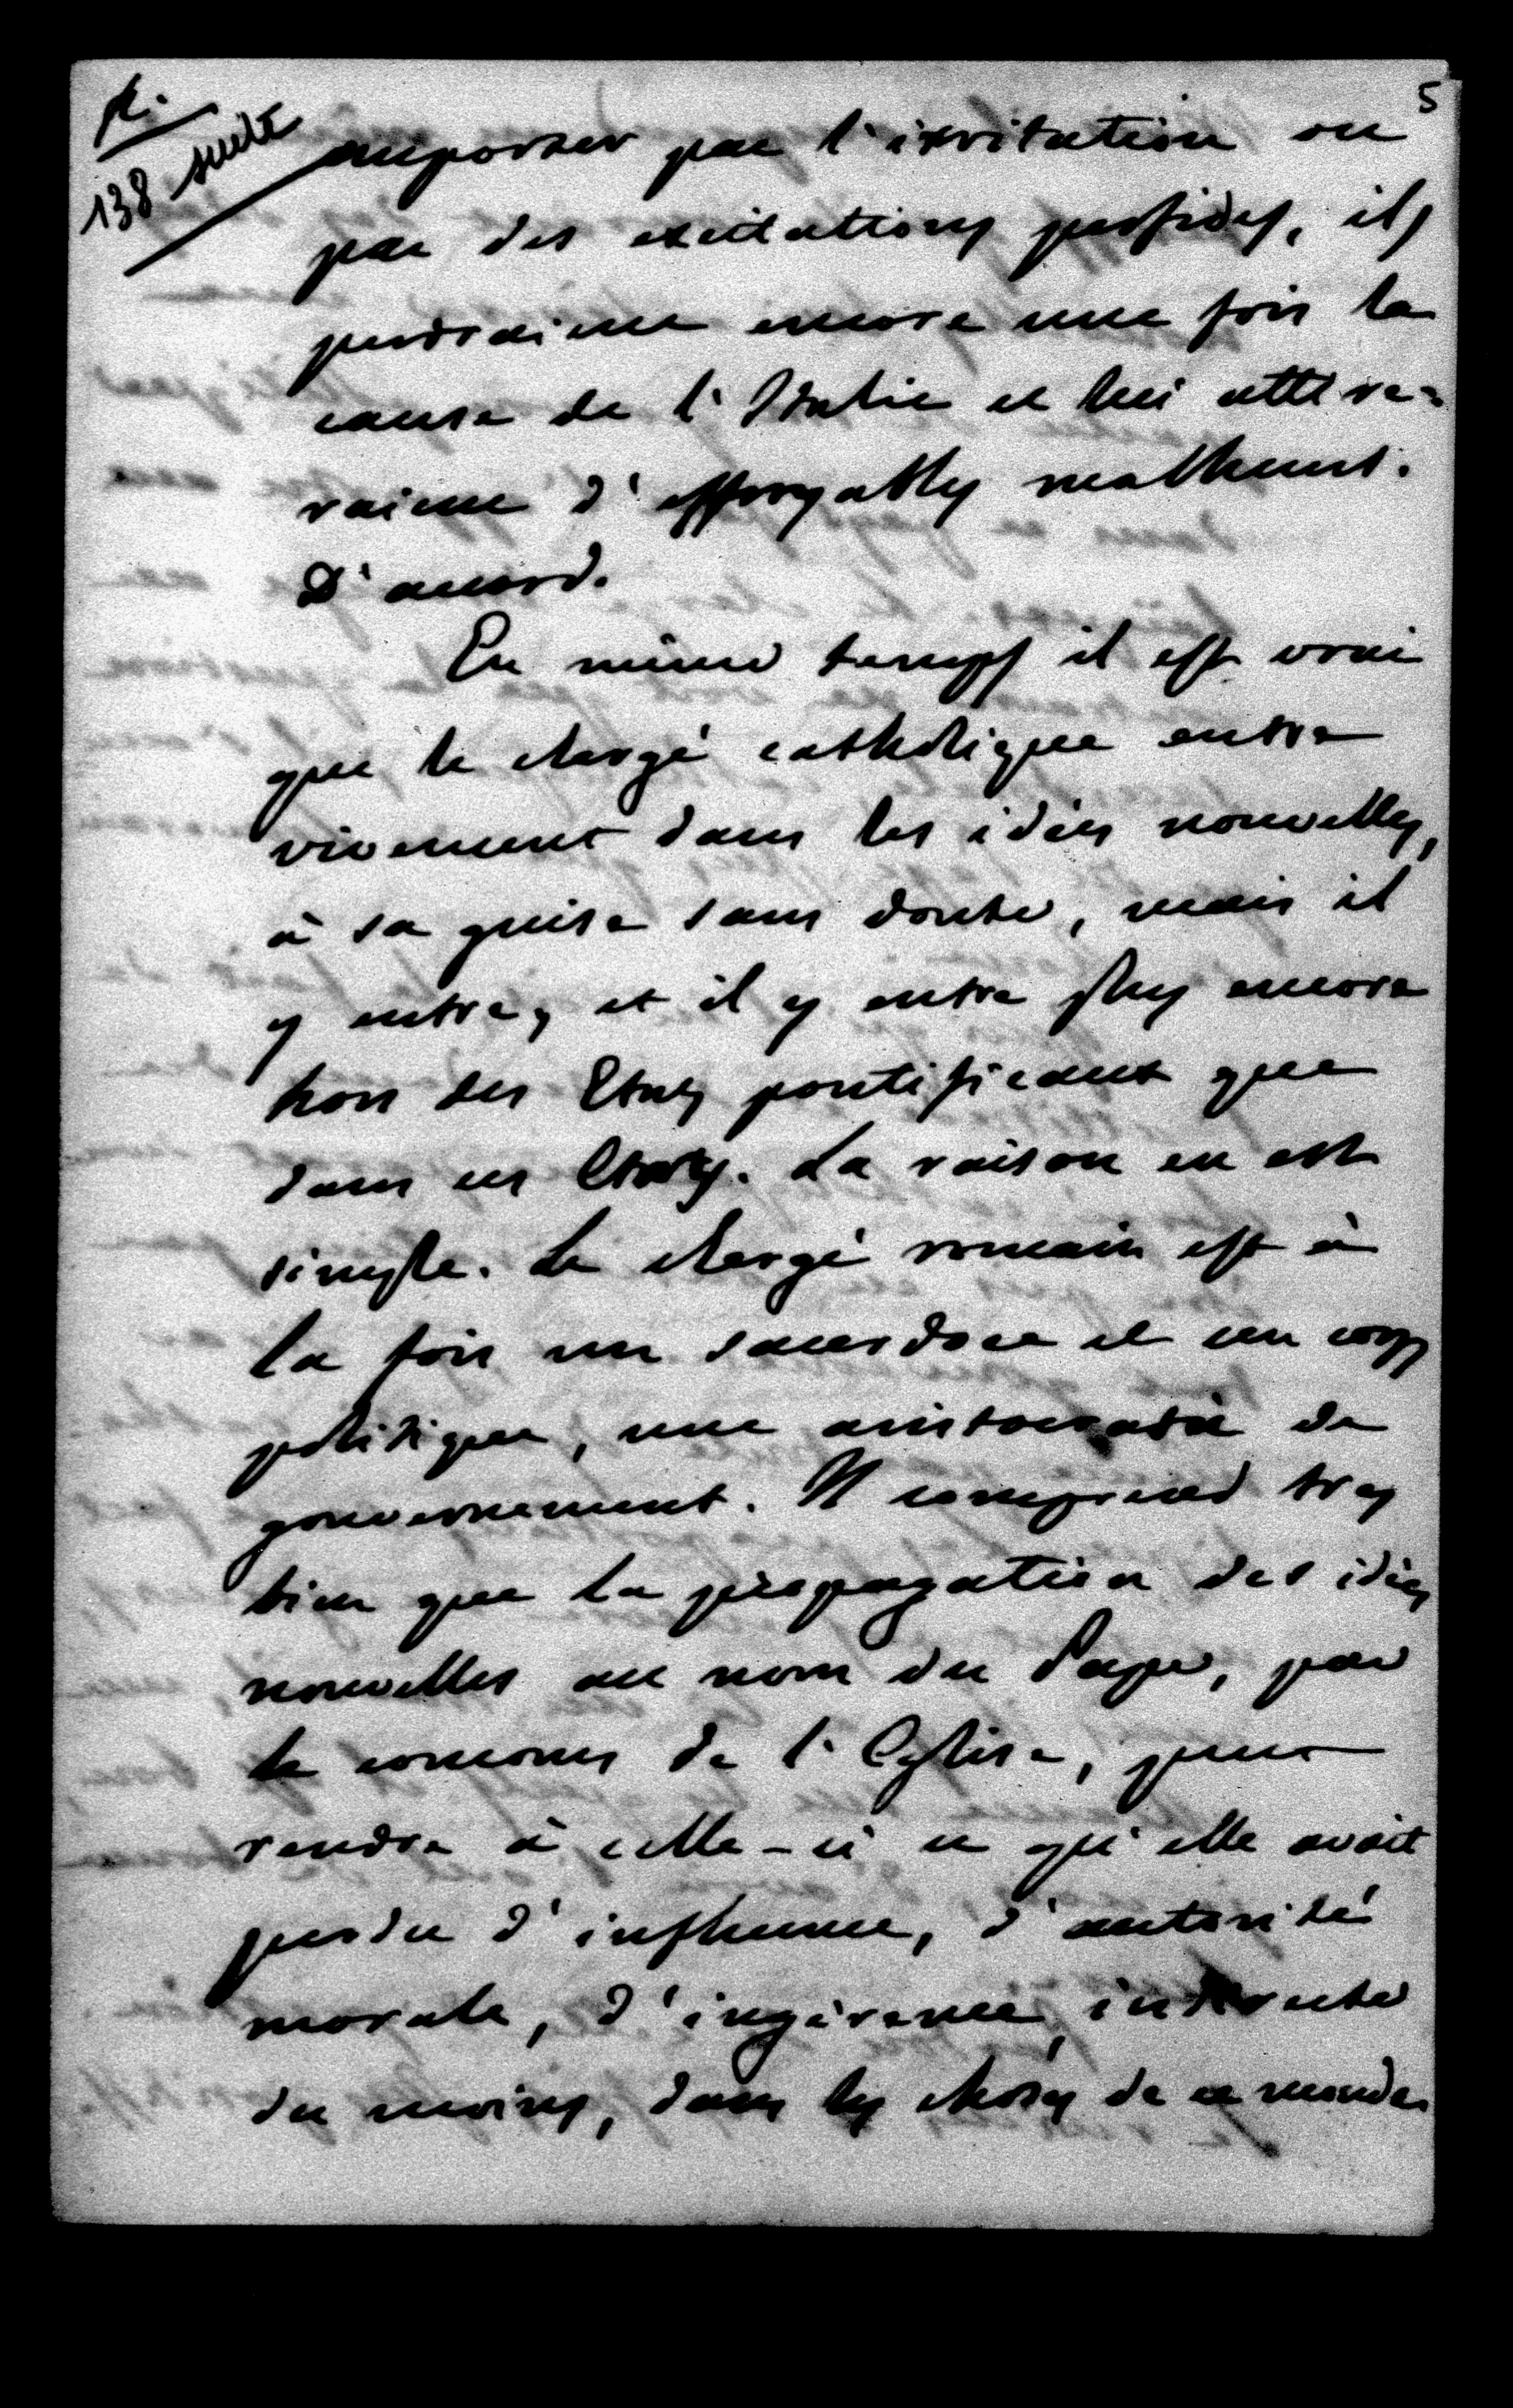 5
138 suite
emporter par l'irritation ou
par des excitations perfides, ils
perdraient encore une fois la
cause de l'Italie et lui attire=
raient d'effroyables malheurs.
D'accord.
En même temps il est vrai
que le clergé catholique entre
vivement dans les idées nouvelles,
à sa guise sans doute, mais il
y entre, et il y entre plus encore
hors des Etats pontificaux que
dans ces Etats. La raison en est
simple. Le clergé romain est à
la fois un sacerdoce et un corps
politique, une aristocratie de
gouvernement. Il comprend très
bien que la propagation des idées
nouvelles au nom du Pape, par
le concours de l'Eglise, peut
rendre à celle-ci ce qu'elle avait
perdu d'influence, d'autorité
morale, d'ingérence, indirecte
du moins, dans les choses de ce monde.